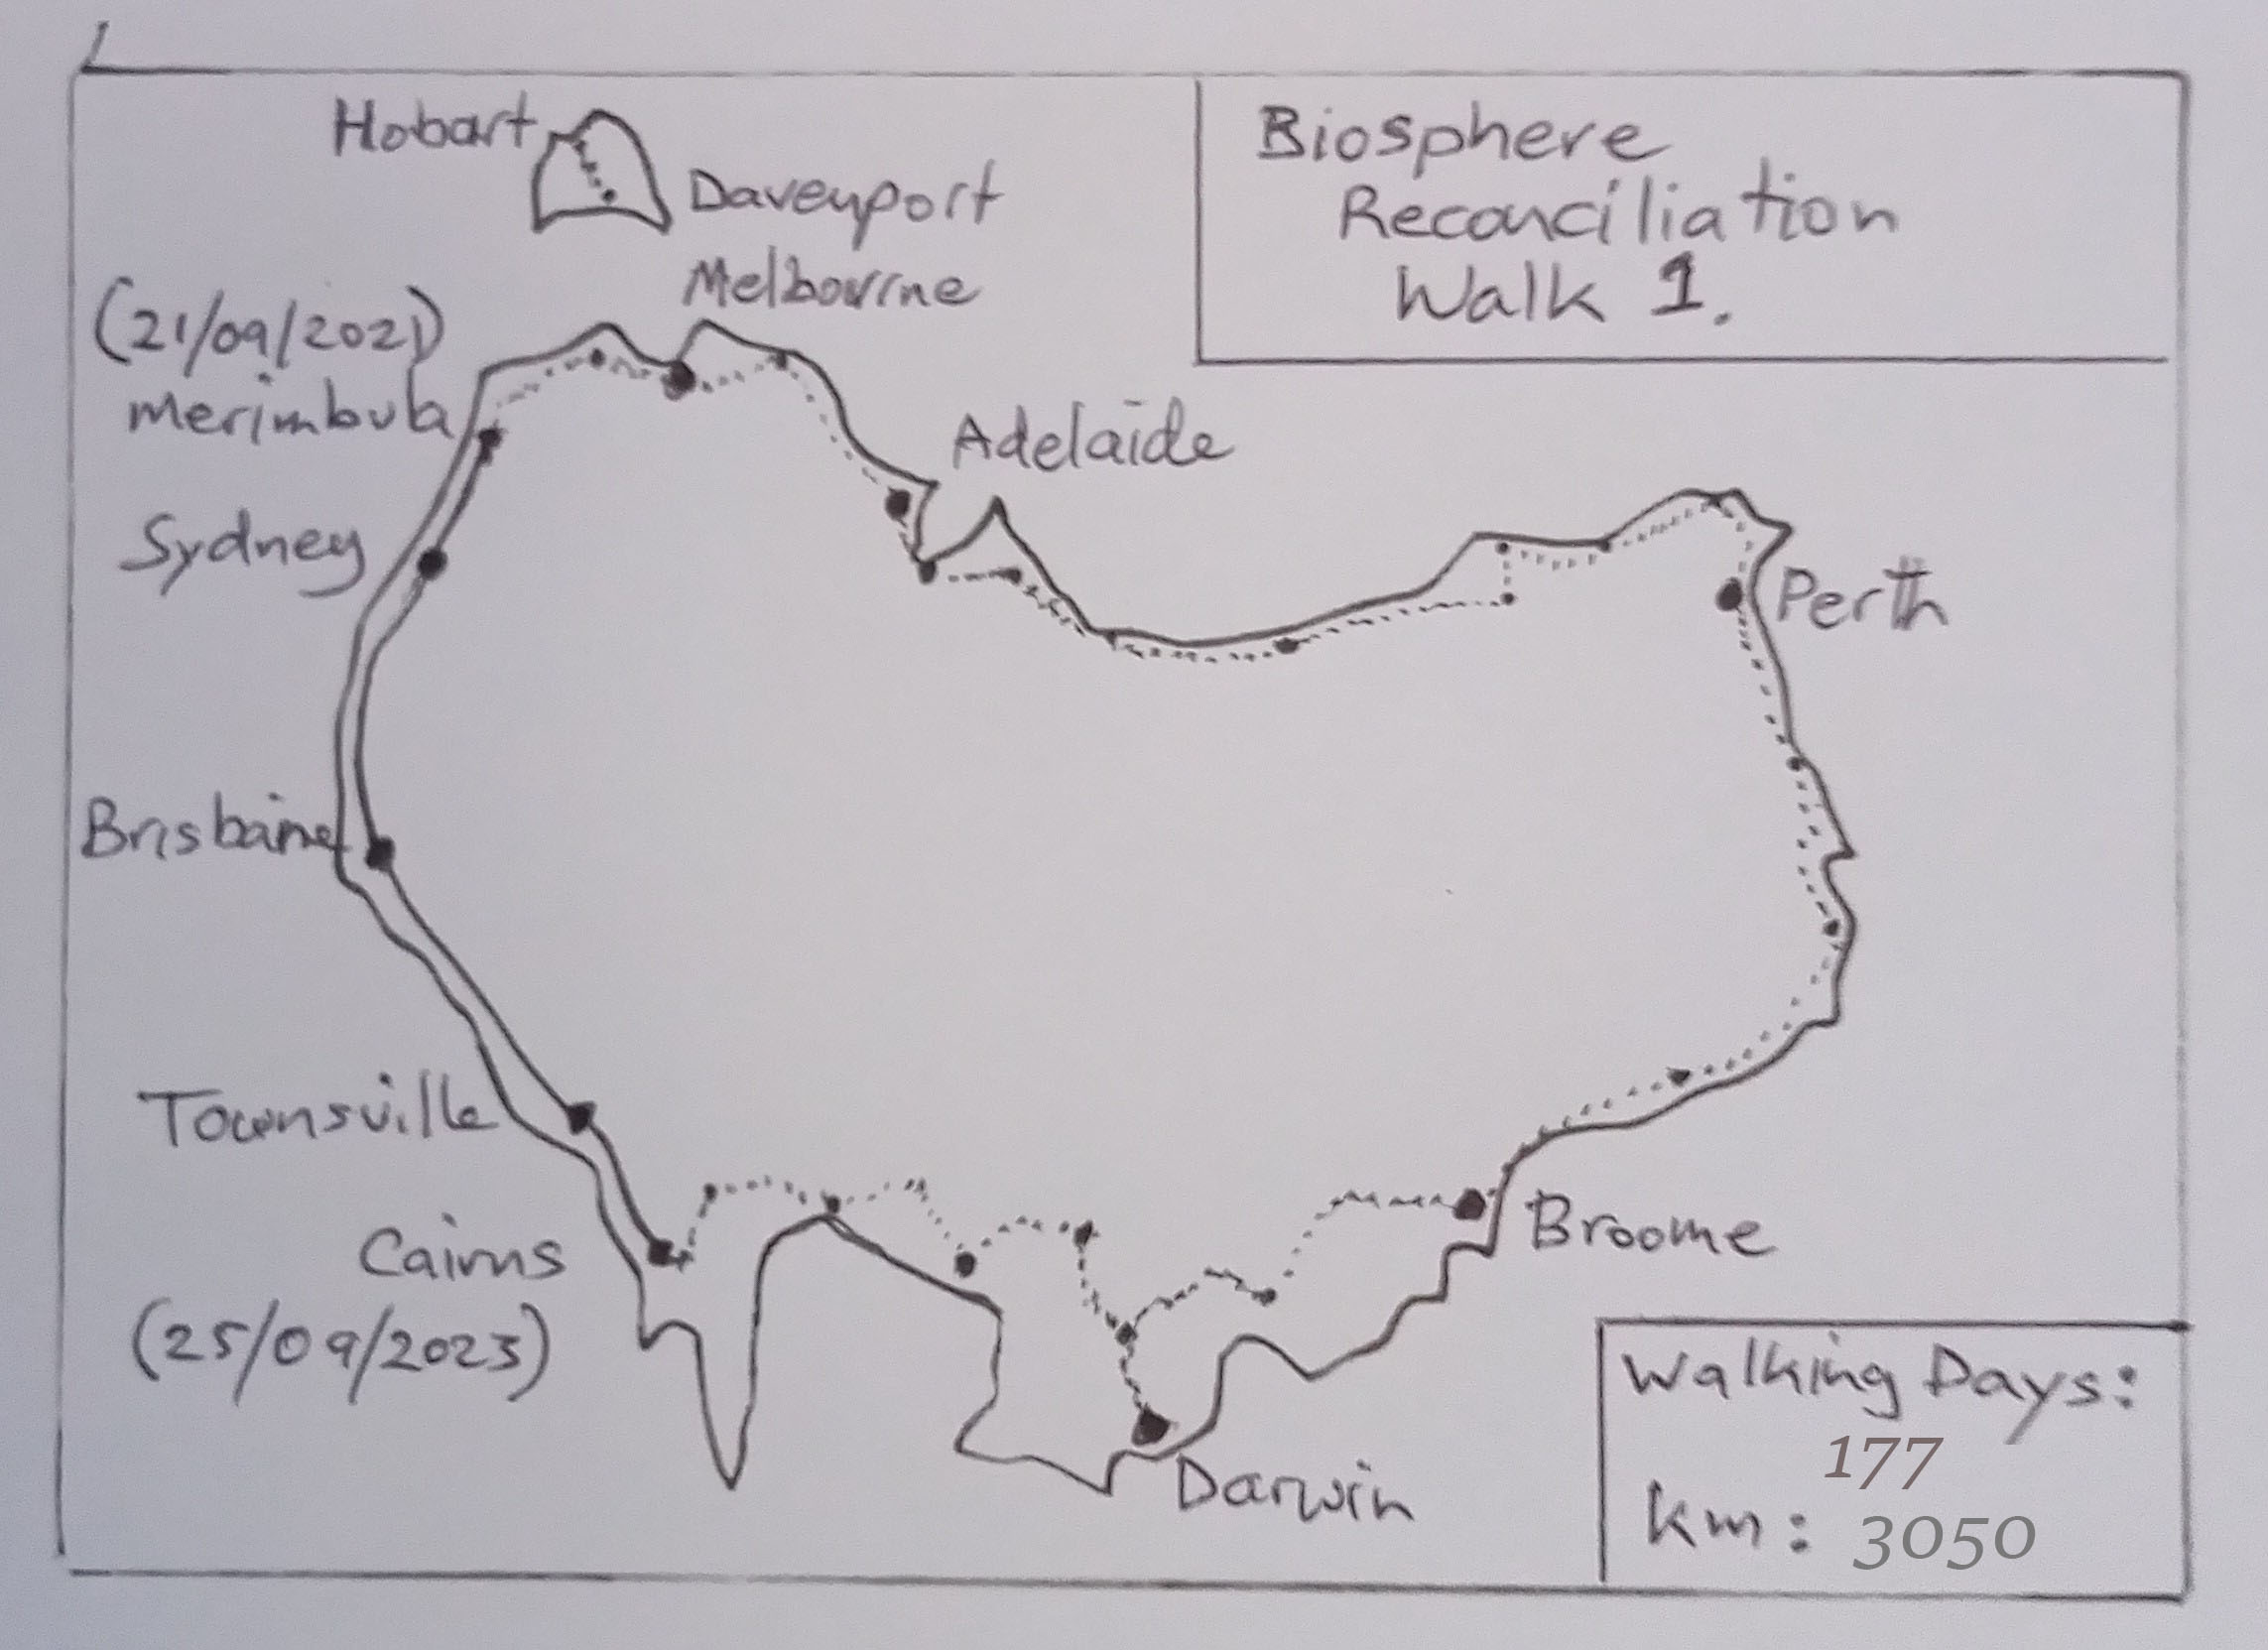 Biosphere
Reconciliation
Walk 1.
Hobart
Davenport
Melbourne
(21/09/2021)
Merimbula
Adelaide
Sydney
Perth
Brisbane
Townsville
Cairns
(25/09/2023)
Broome
Darwin
Walking Days:
177
km: 3050